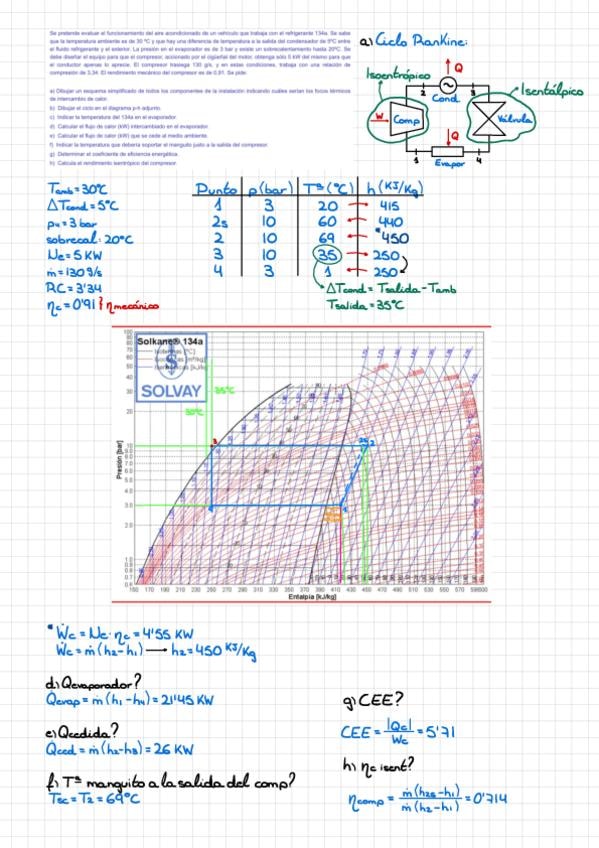 Se pretende evaluar el funcionamiento del aire acondicionado de un vehículo que trabaja con el refrigerante 134a. Se sabe
que la temperatura ambiente es de 30 ºC y que hay una diferencia de temperatura a la salida del condensador de 5ºC entre
el fluido refrigerante y el exterior. La presión en el evaporador es de 3 bar y existe un sobrecalentamiento hasta 20ºC. Se
debe diseñar el equipo para que el compresor, accionado por el cigüeñal del motor, obtenga sólo 5 kW del mismo para que
el conductor apenas lo aprecie. El compresor trasiega 130 g/s, y en estas condiciones, trabaja con una relación de
compresión de 3,34. El rendimiento mecánico del compresor es de 0,91. Se pide:
a) Dibujar un esquema simplificado de todos los componentes de la instalación indicando cuáles serían los focos térmicos
de intercambio de calor.
b) Dibujar el ciclo en el diagrama p-h adjunto.
c) Indicar la temperatura del 134a en el evaporador.
d) Calcular el flujo de calor (kW) intercambiado en el evaporador.
e) Calcular el flujo de calor (kW) que se cede al medio ambiente.
f) Indicar la temperatura que debería soportar el manguito justo a la salida del compresor.
g) Determinar el coeficiente de eficiencia energética.
h) Calcula el rendimiento isentrópico del compresor.
a) Ciclo Rankine:
Isoentrópico
Q
2
3
Cond.
Isentálpico
W
Comp
Válvula
Q
1
4
Evapor
Tamb = 30ºC
ΔTcond = 5ºC
p4 = 3 bar
sobrecal: 20ºC
Nc = 5 KW
ṁ = 130 g/s
RC = 3'34
ηc = 0'91 } ηmecánico
Punto p(bar) Tª(ºC) h(KJ/Kg)
1 3 20 415
2s 10 60 440
2 10 69 *450
3 10 35 250
4 3 1 250
ΔTcond = Tsalida - Tamb
Tsalida = 35ºC
Solkane® 134a
SOLVAY
35ºC
30ºC
3
2s 2
4
1
Presión [bar]
Entalpía [kJ/kg]
* Ẇc = Nc · ηc = 4'55 KW
Ẇc = ṁ (h2 - h1) → h2 = 450 KJ/Kg
d) Qevaporador?
Qevap = ṁ (h1 - h4) = 21'45 KW
e) Qcedida?
Qced = ṁ (h2 - h3) = 26 KW
f) Tª manguito a la salida del comp?
Tsc = T2 = 69ºC
g) CEE?
CEE = |Qc| / Wc = 5'71
h) ηc isent?
ηcomp = ṁ (h2s - h1) / ṁ (h2 - h1) = 0'714